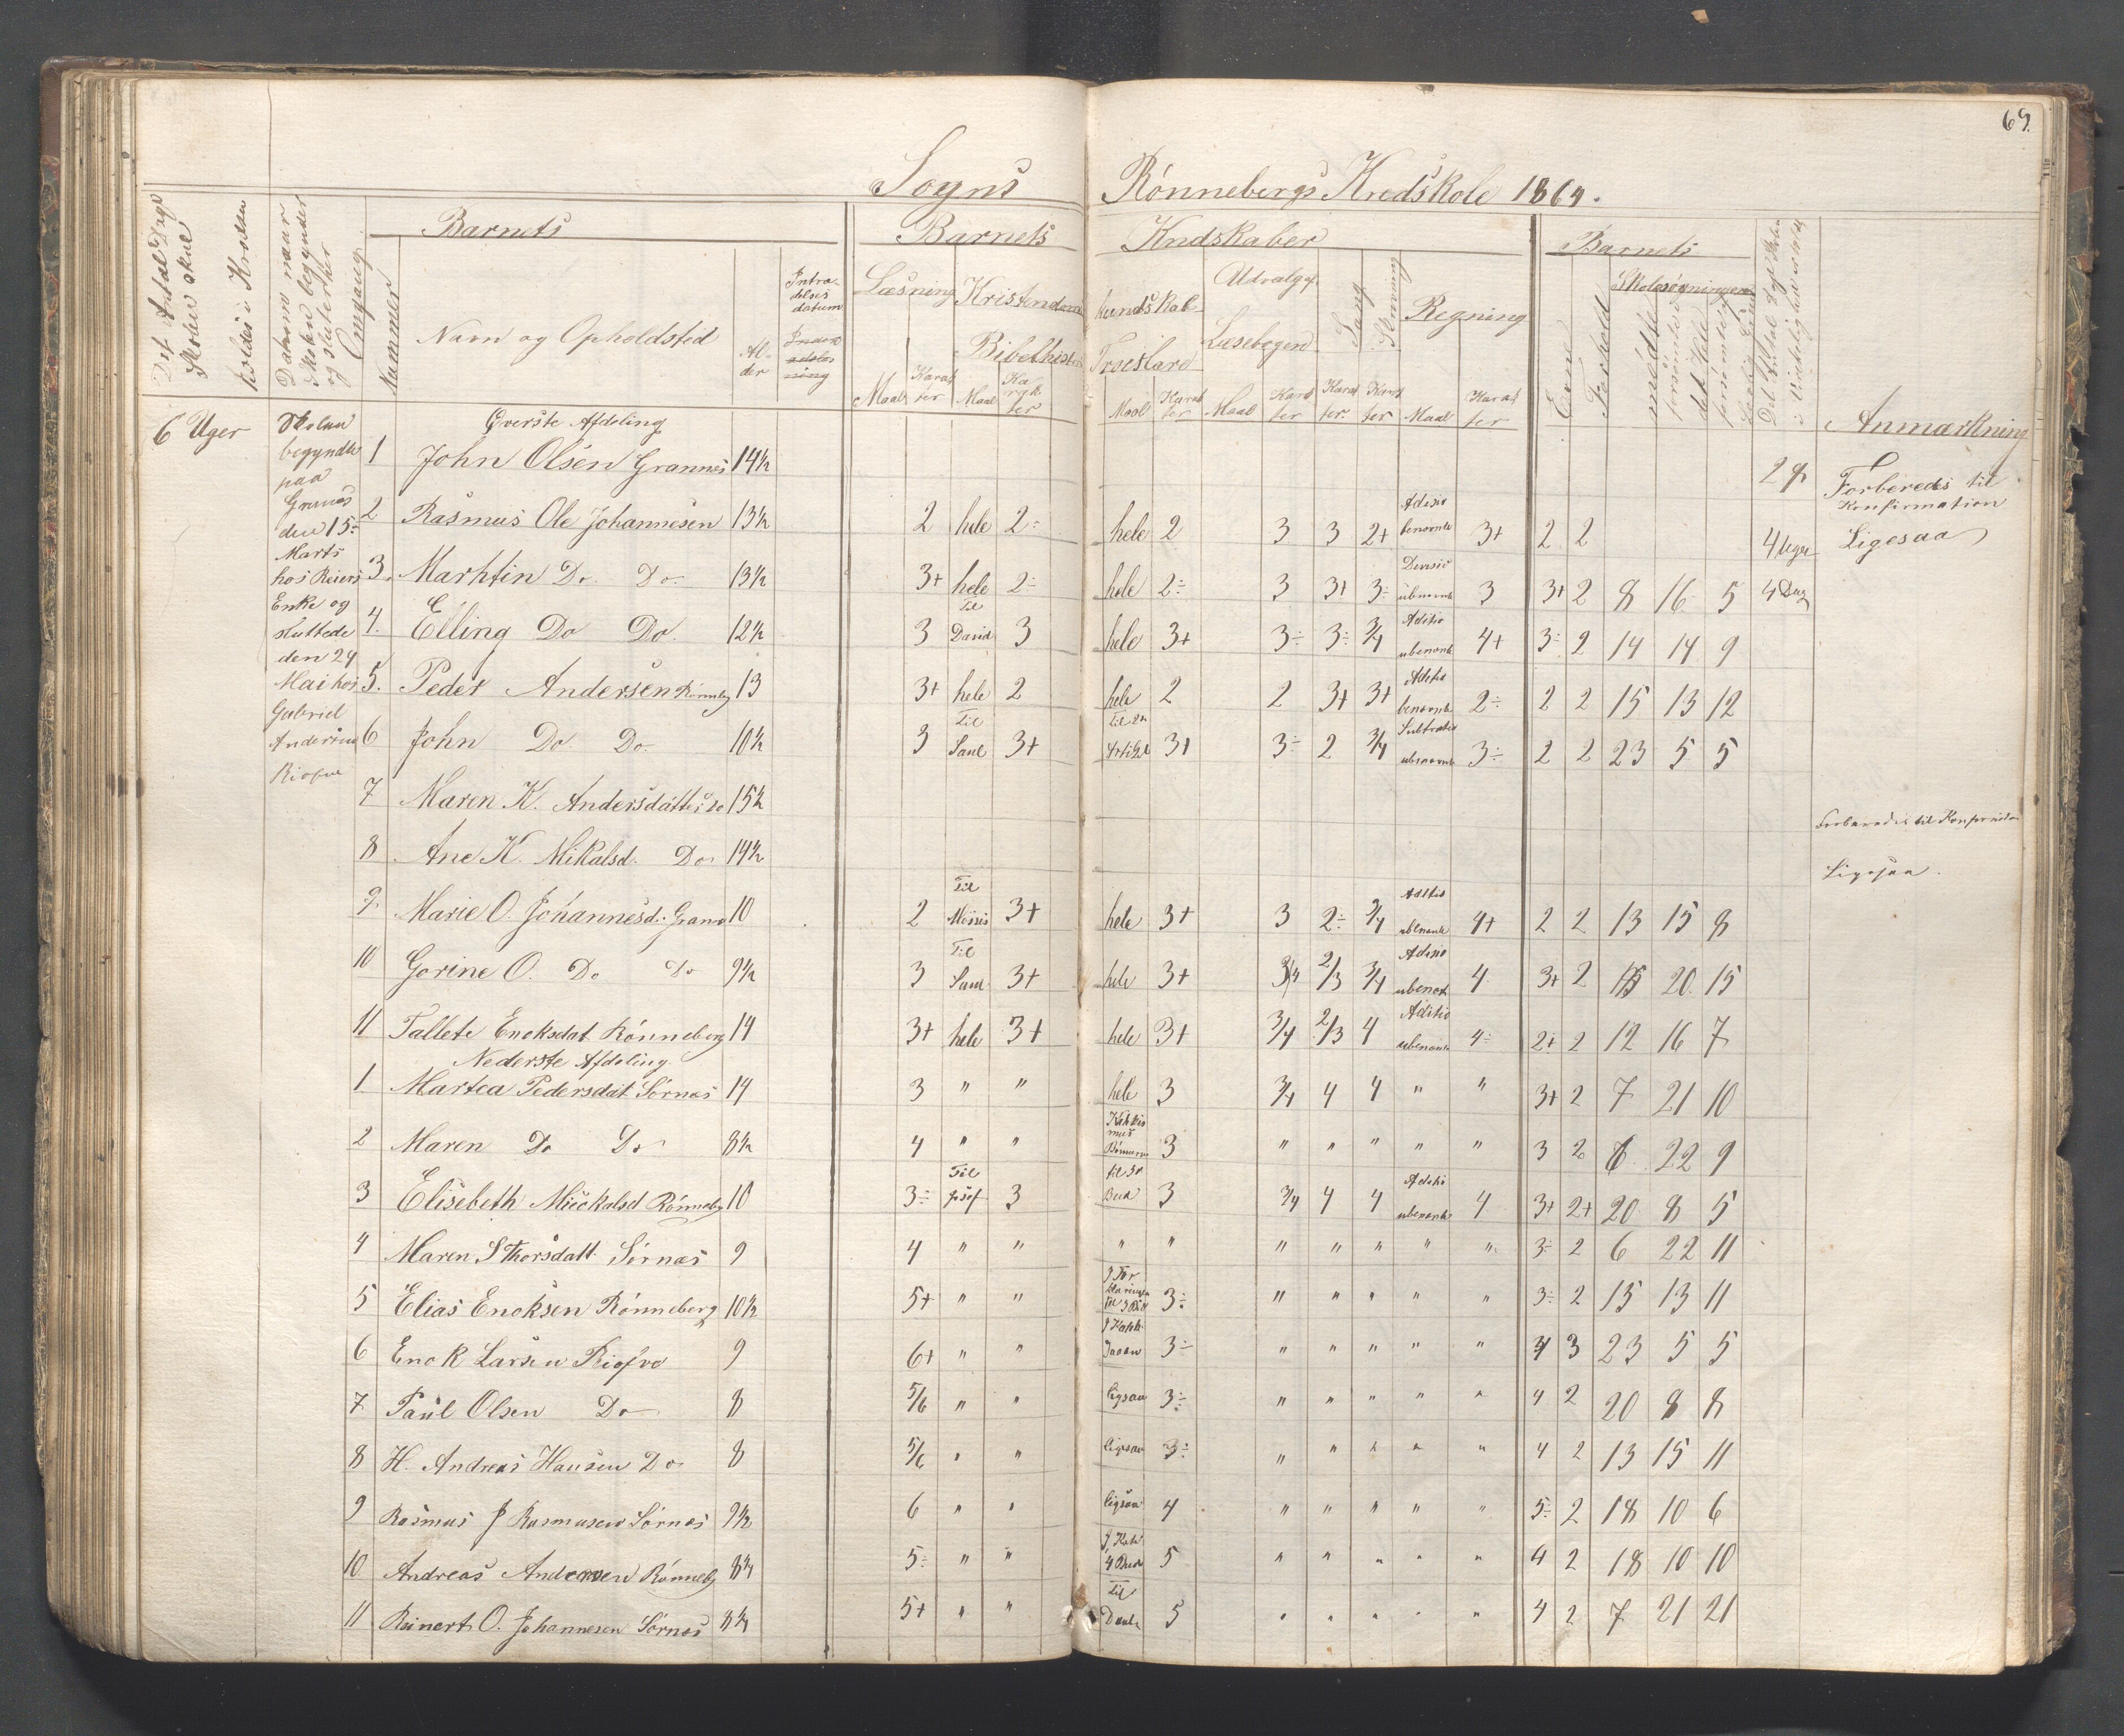 69.
Sogns Rönnebergs Kredskole 1864.
Det Antal Dage Skolen skul holdes i Kredsen
Datum naar Skolen begynder og slutter hver Omgang
Nummer
Barnets
Navn og Opholdsted
Al-der
Intrædelses datum
Barnets Kndskaber
Læsning
Maal
Karakter
Kristendomskundskab
Bibelhistorie
Maal
Karakter
Troeslære
Maal
Karakter
Udvalg af Læsebogen
Maal
Karakter
Sang
Karakter
Skrivning
Karakter
Regning
Maal
Karakter
Barnets
Evne
Forhold
Skolesøgningen
mødte
forsømte det Hele
forsømte af
Det Antal Dage Skolen i Virkelighed
Anmærkning
6 Uger
Skolen begyndte paa Grannes den 15. Marts hos Reiers Enke og sluttede den 24 Mai hos Gabriel Andersen
Øverste Afdeling
1 John Olsen Grannes 14½ Forberedes til Konfirmation
2 Rasmus Ole Johannesen 13½ 2 hele 2÷ hele 2 3 3 2+ Adisio benævnte 3+ 2 2 4 Uger Ligesaa
3. Marhtin Do. Do. 13½ 3+ hele 2÷ hele 2÷ 3 3+ 3÷ Divisio ubenævnte 3 3+ 2 8 16 5 4 Dag
4. Elling Do Do. 12½ 3 Til David 3 hele 3+ 3÷ 3÷ 3/4 Aditio ubenævnte 4+ 3÷ 2 14 14 9
5. Peder Andersen Rönneberg 13 3+ hele 2 hele 2 2 3+ 3+ Aditio benævnte 2÷ 2 2 15 13 12
6 John Do Do. 10½ 3 Til Saul 3+ Til 2n Artikel 3+ 3÷ 2 3/4 Subtratio ubenævnte 3÷ 2 2 23 5 5
7 Maren K. Andersdatter Do 15½ Forberedes til Konfirmation
8 Ane K. Mikalsd. Do 14½ Ligesaa.
9 Marie O. Johannesd. Grannes 10 2 Til Moses 3+ hele 3+ 3 2÷ 3/4 Aditio ubenævnte 4+ 2 2 13 15 8
10 Gorine O. Do Do 9½ 3 Til Saul 3+ hele 3+ 3/4 2/3 3/4 Adisio ubenævnte 4 3+ 2 20 15
11 Tallete Enoksdat Rönneberg 14 3+ hele 3+ hele 3+ 3/4 2/3 4 Aditio ubenævnte 4÷ 2+ 2 12 16 7
Nederste Afdeling
1 Martea Pedersdat Sörnæs 14 3 " " hele 3 3/4 4 4 " " 3+ 2 7 21 10
2 Maren Do Do 8½ 4 " " 3 " " " " " 3 2 6 22 9
3 Elisebeth Mickalsd Rönneberg 10 3÷ Til Josef 3 til 5te Bud 3 3/4 4 4 Aditio ubenævnte 4 3+ 2+ 20 8 5
4 Maren S Thorsdatt. Sörnæs 9 4 " " " " " " " " " 3÷ 2 6 22 11
5 Elias Enoksen Rönneberg 10½ 5+ " " I Forklaringen til 3 Bud 3÷ " " " " " 3÷ 2 15 13 11
6 Enok Larsen 9 6+ " " I Katek. Daaben 3÷ " " " " " 4 3 23 5 5
7 Paul Olsen Do 8 5/6 " " ligsaa 3÷ " " " " " 4 2 20 8 8
8 H. Andreas Hansen Do 8 5/6 " " ligesaa 3÷ " " " " " 4 2 13 15 11
9 Rasmus J Rasmusen Sörnæs 9½ 6 " " ligsaa 4 " " " " " 5÷ 2 18 10 6
10 Andreas Andersen Rönneberg 8¾ 5÷ " " I Kat 4 Bud 5 " " " " " 4 2 18 10 10
11 Reinert O. Johannesen Sörnæs 8¾ 5+ " " Til Daab 5 " " " " " 4 2 7 21 21